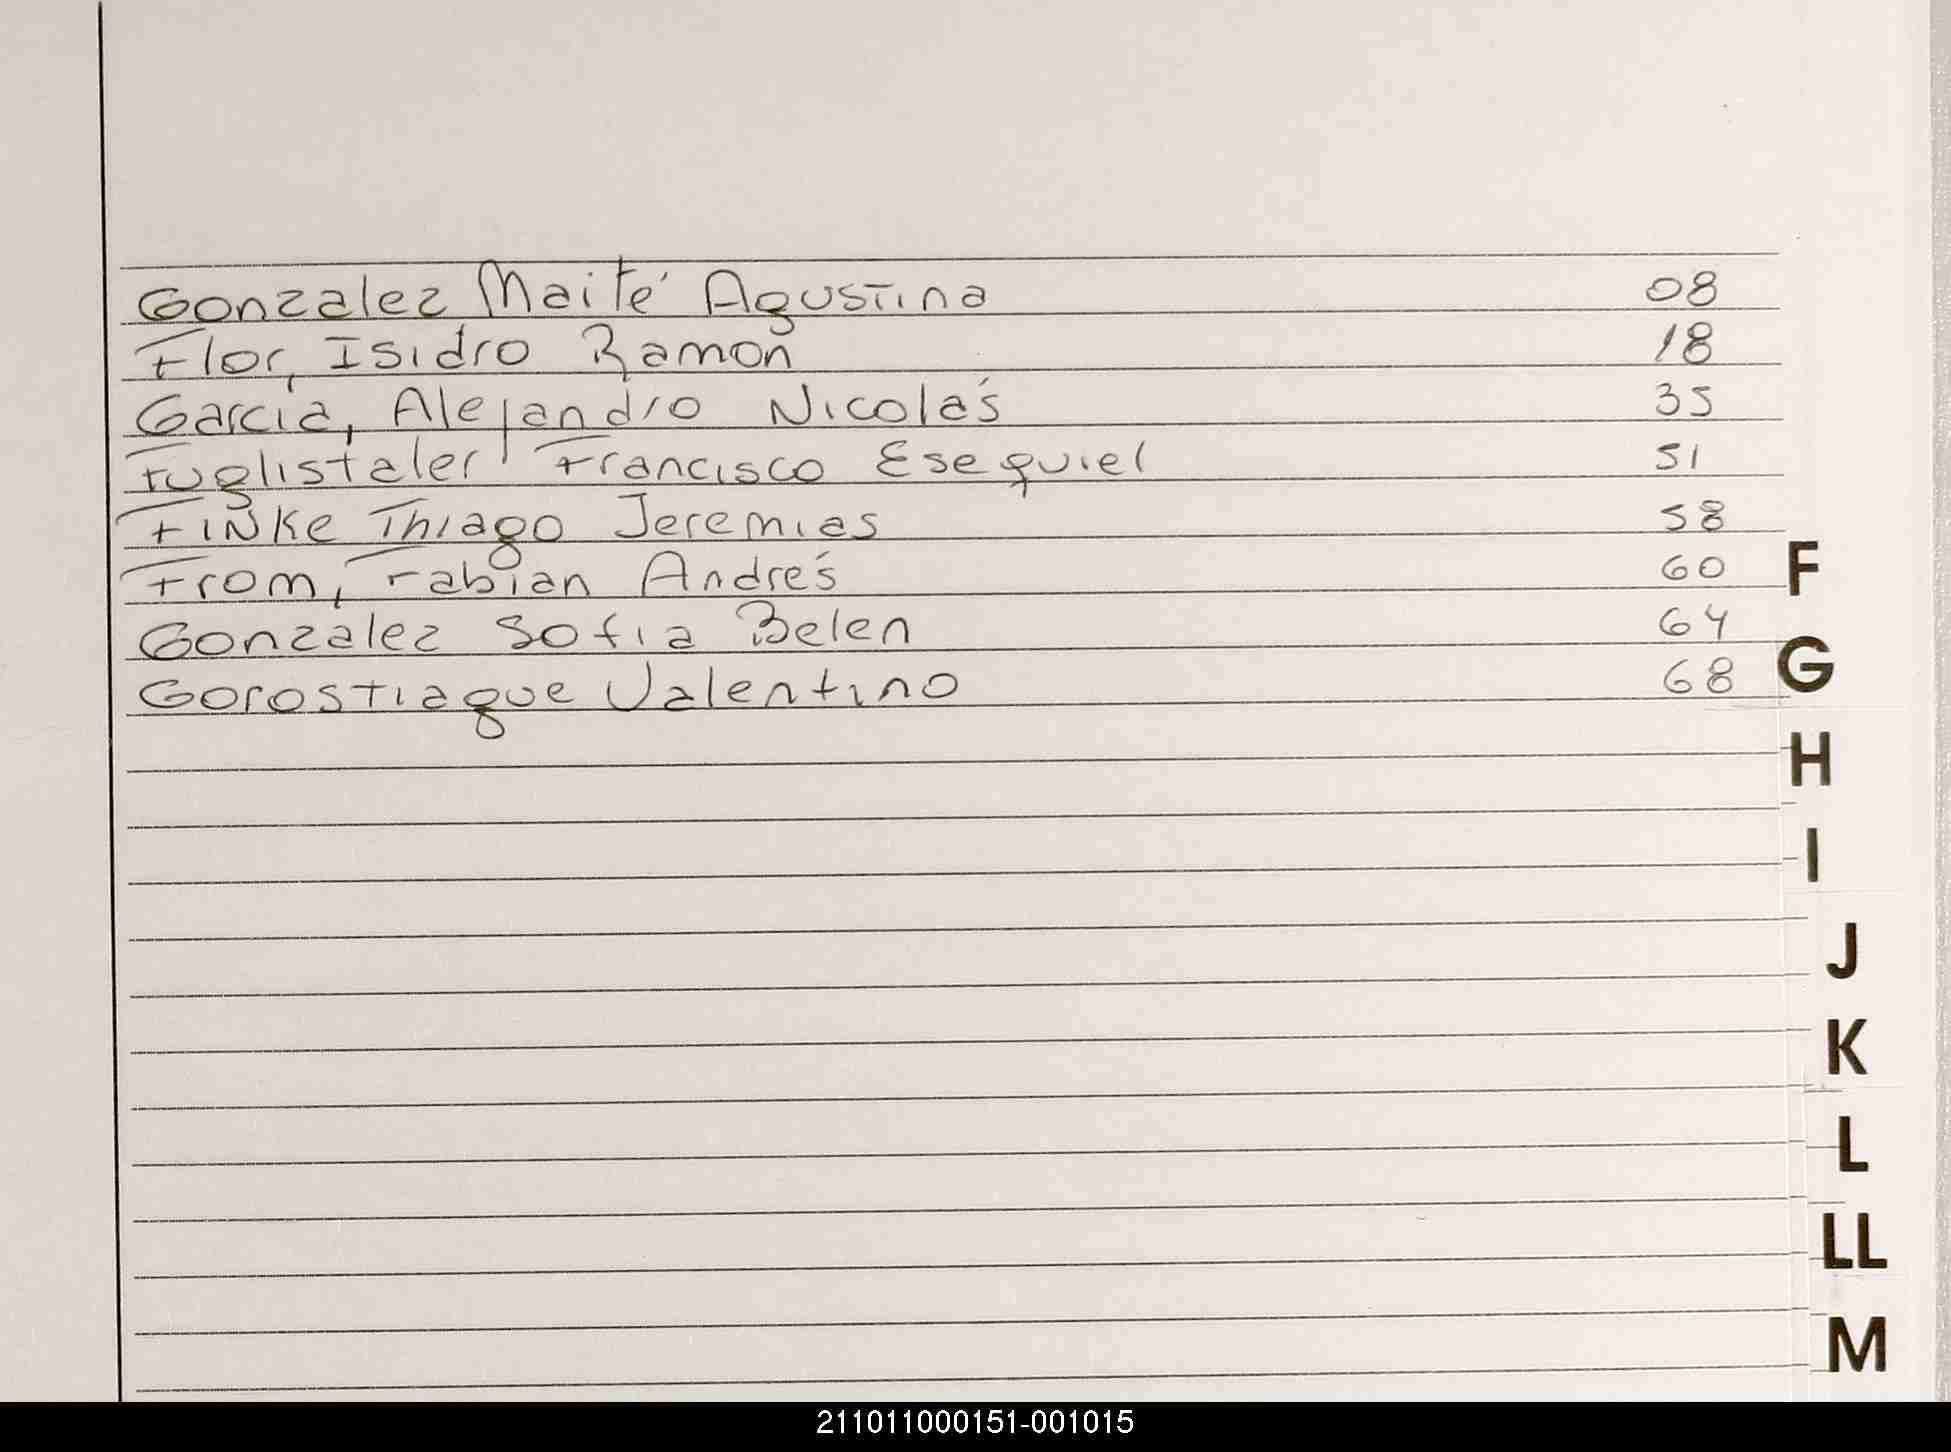 Gonzalez Maité Agustina 08
Flor, Isidro Ramon 18
Garcia, Alejandro Nicolás 35
Fuglistaler Francisco Esequiel 51
FINKe Thiago Jeremias 58
From, Fabian Andrés 60
Gonzalez Sofia Belen 64
Gorostiague Valentino 68
F
G
H
I
J
K
L
LL
M
211011000151-001015